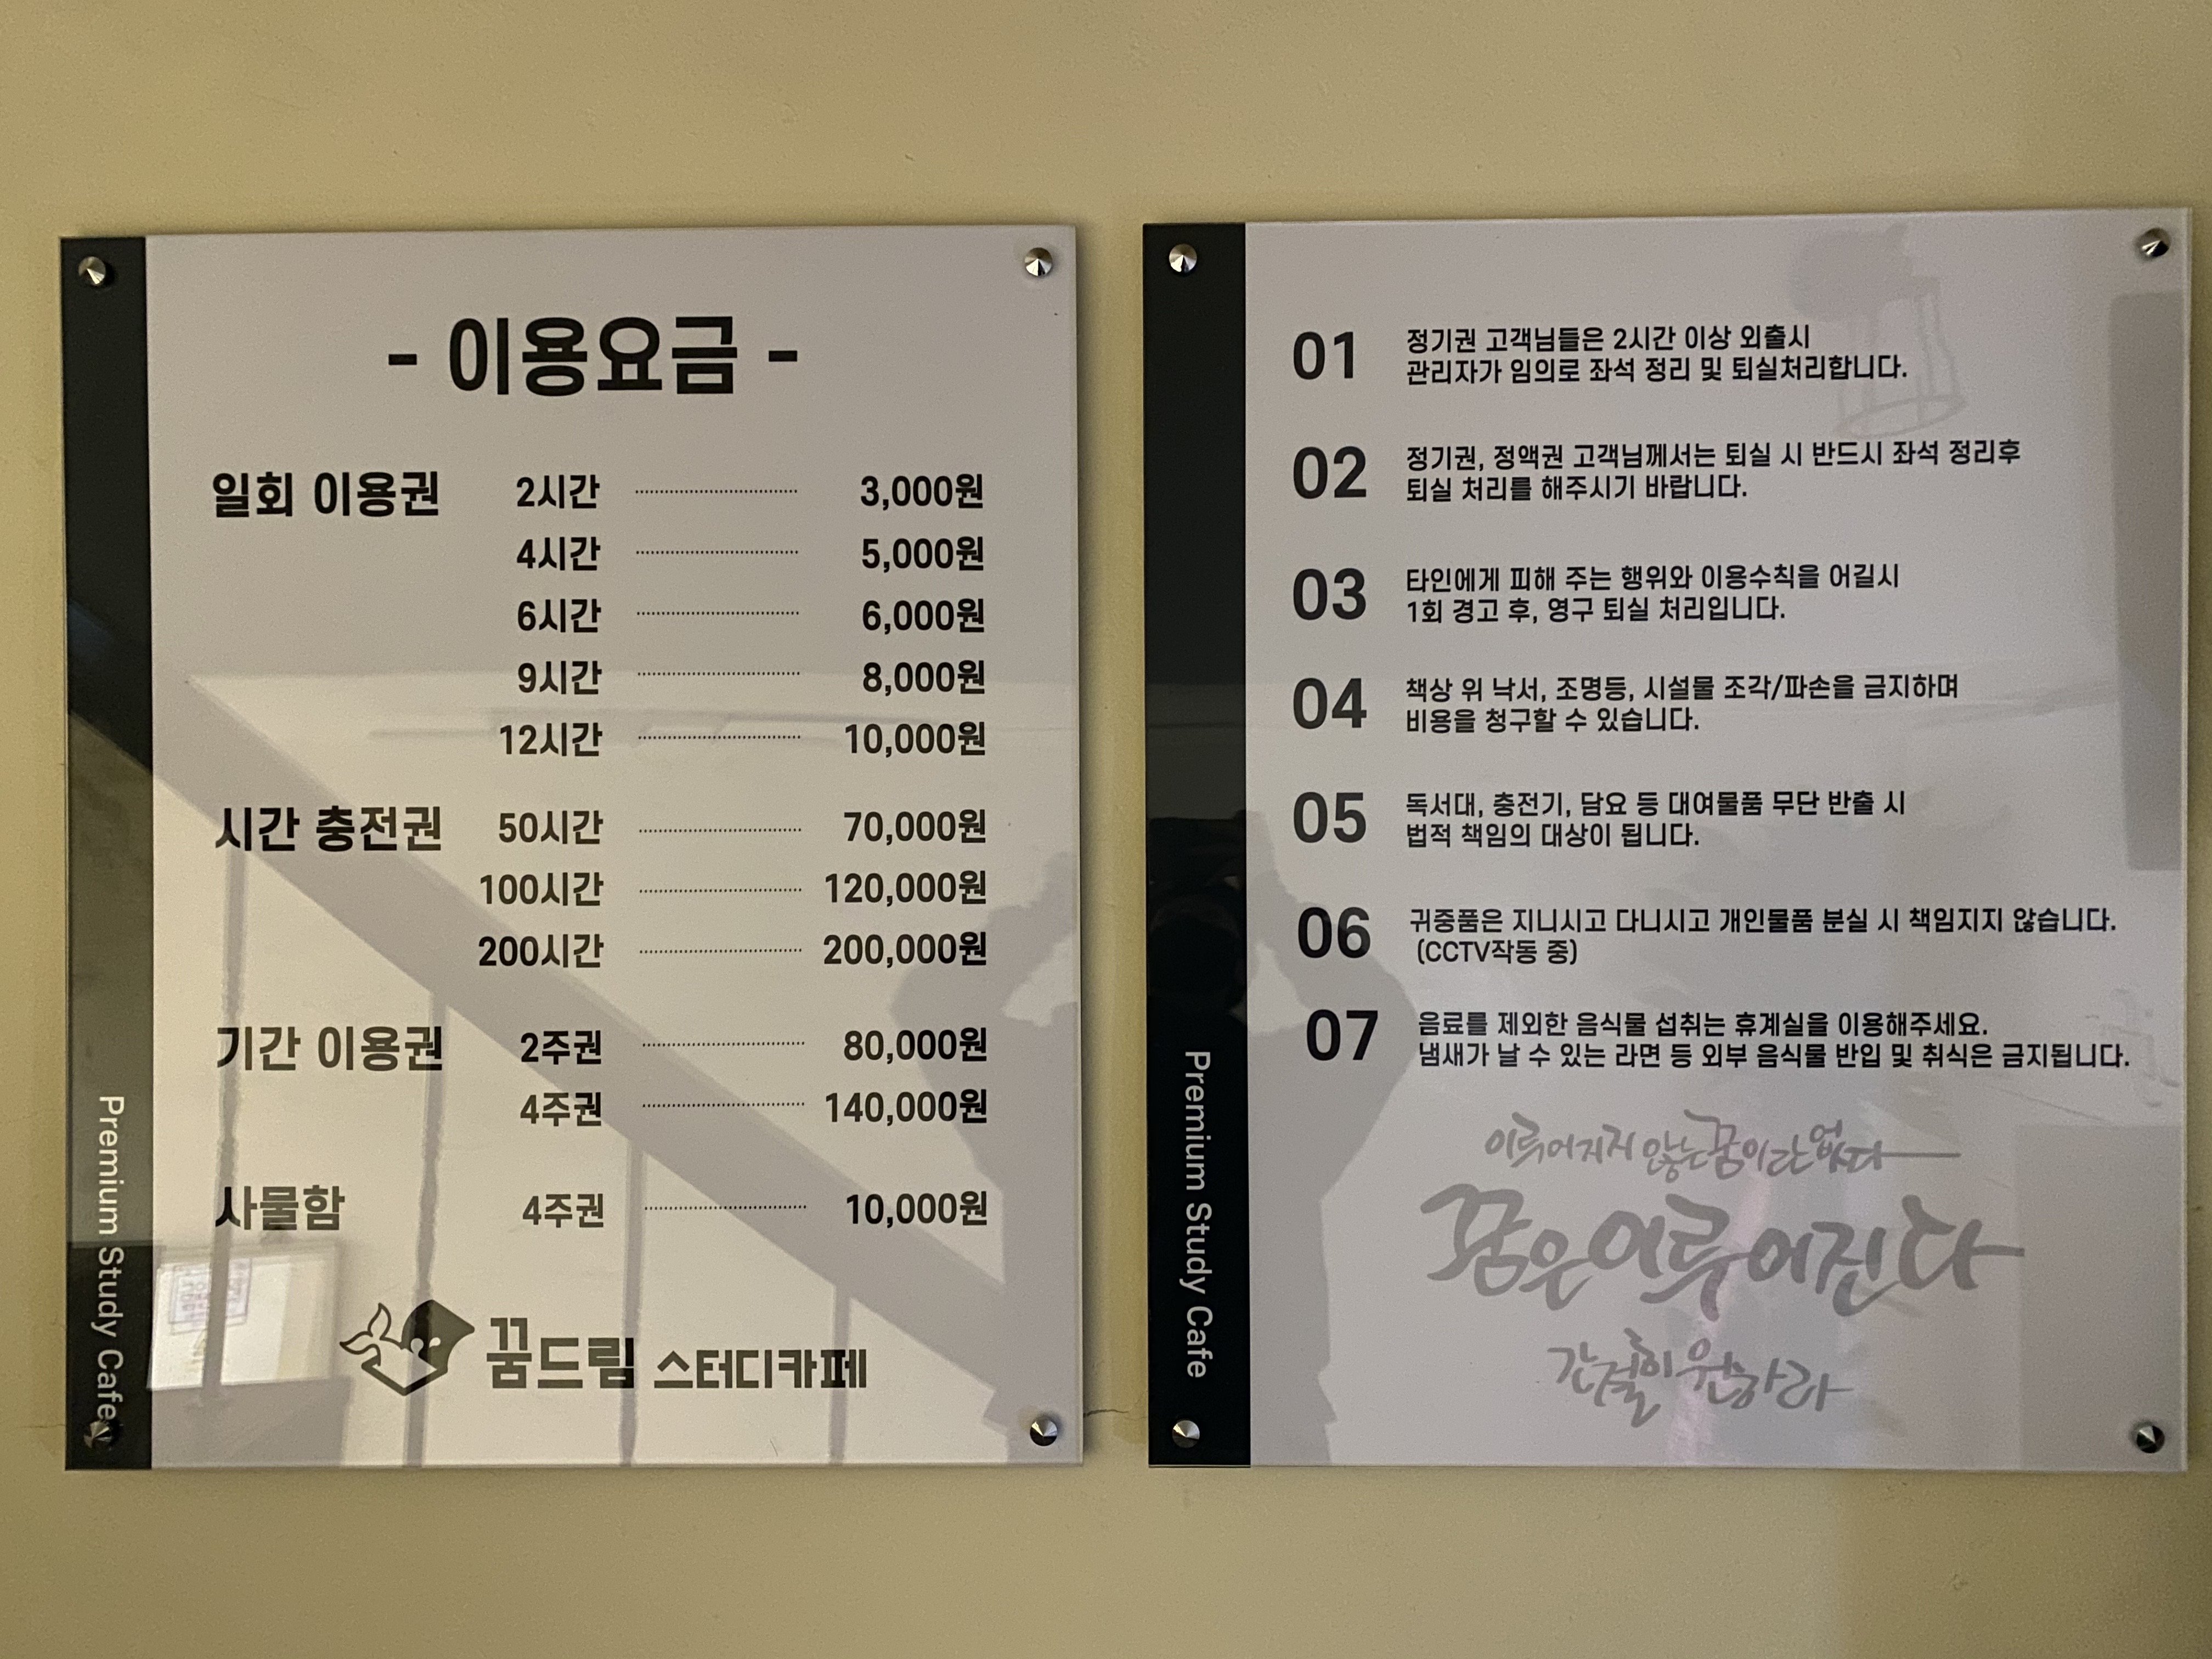 - 이용요금 -
일회 이용권 2시간 3,000원
4시간 5,000원
6시간 6,000원
9시간 8,000원
12시간 10,000원
시간 충전권 50시간 70,000원
100시간 120,000원
200시간 200,000원
기간 이용권 2주권 80,000원
4주권 140,000원
사물함 4주권 10,000원
꿈드림 스터디카페
Premium Study Cafe
01 정기권 고객님들은 2시간 이상 외출시
관리자가 임의로 좌석 정리 및 퇴실처리합니다.
02 정기권, 정액권 고객님께서는 퇴실 시 반드시 좌석 정리후
퇴실 처리를 해주시기 바랍니다.
03 타인에게 피해 주는 행위와 이용수칙을 어길시
1회 경고 후, 영구 퇴실 처리입니다.
04 책상 위 낙서, 조명등, 시설물 조각/파손을 금지하며
비용을 청구할 수 있습니다.
05 독서대, 충전기, 담요 등 대여물품 무단 반출 시
법적 책임의 대상이 됩니다.
06 귀중품은 지니시고 다니시고 개인물품 분실 시 책임지지 않습니다.
(CCTV작동 중)
07 음료를 제외한 음식물 섭취는 휴계실을 이용해주세요.
냄새가 날 수 있는 라면 등 외부 음식물 반입 및 취식은 금지됩니다.
이루어지지 않는 꿈이란 없다
꿈은 이루어진다
간절히 원하라
Premium Study Cafe